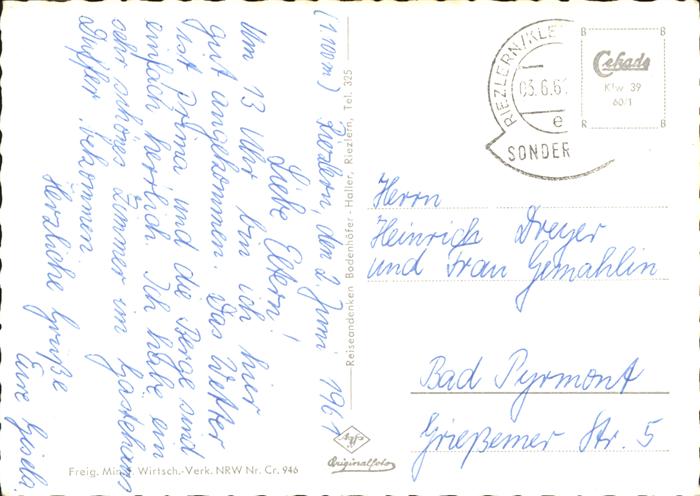 (1100m) Riezlern, den 2. Juni 1961
Liebe Eltern!
Um 13 Uhr bin ich hier
gut angekommen. Das Wetter
ist prima und die Berge sind
einfach herrlich. Ich habe ein
sehr schönes Zimmer im Gästehaus
bekommen.
Herzliche Grüße
Eure Gisela.
Reiseandenken Bodenhöfer-Haller, Riezlern, Tel. 325
Originalfoto
Freig. Min. f. Wirtsch.-Verk. NRW Nr. Cr. 946
RIEZLERN/KLE
05.6.61
e
SONDER
B B
Cekade
Kfw 39
60/1
R B
Herrn
Heinrich Dreyer
und Frau Gemahlin
Bad Pyrmont
Grießemer Str. 5